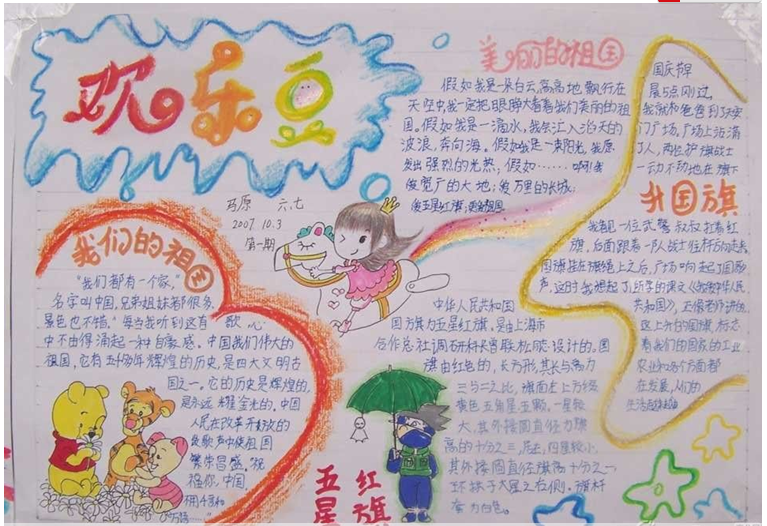 欢乐豆
马原 六.七
2007.10.3
第一期
美丽的祖国
假如我是一朵白云,高高地飘行在
天空中,我一定把眼睁大看看我们美丽的祖
国。假如我是一滴水,我长江入治天的
波浪,奔向海。假如我是一束阳光,我愿
发出强烈的光热;假如……啊!爱
爱宽广的大地;爱万里的长城;
爱五星红旗;
国庆节早
晨5点刚过,
我就和爸爸到
广场。广场上站满
了人,两位护旗战士
一动不动地在旗下
升国旗
我看见一位武警叔叔扛着红
旗,后面跟着一队战士往杆
国旗挂在旗绳上之后,广场响起了国歌
声,这时我想起了所学的课文《我爱中华人民
共和国》,正像老师讲的
这上升的国旗,标志
着我们的国家的工业
农业和各个方面都
在发展,人们的
生活
我们的祖国
"我们都有一个家,
名字叫中国,兄弟姐妹都很多,
景色也不错。"每当我听到这有歌,心
中不由得涌起一种自豪感。中国我们伟大的
祖国,它有五千多年辉煌的历史,是四大文明古
国之一。它的历史是辉煌的,
是永远耀金光的。中国
人民在改革开放的
歌声中使祖国
繁荣昌盛。祝
福你,中国
中华人民共和国
国旗为五星红旗。由上海市
合作总社调研科曾联松设计的。国
旗由红色的,长方形,其长与高为
三与二之比,旗面左上方缀
黄色五角星五颗,一星较
大,其外接圆直径为旗
高的十分之三,居左,四星较小,
其外接圆直径旗高十分之一,
环拱于大星之右侧。旗杆
套为白色。
五星
红旗